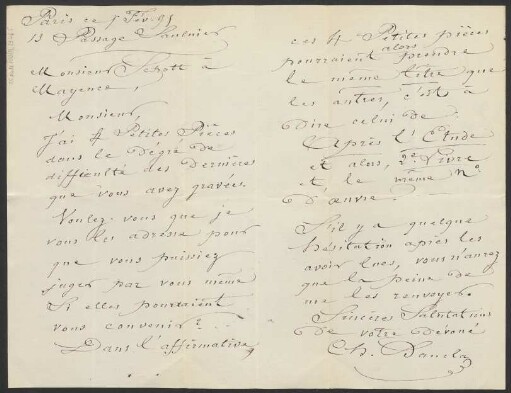 Paris ce 5 Févr 91
13 Passage Saulnier
Monsieur Schott à
Mayence,
Monsieur,
J'ai 4 Petites Pièces
dans le Dégré de
difficulté des Dernières
que vous avez gravées.
Voulez-vous que je
vous les adresse pour
que vous puissiez
juger par vous même
Si elles pourraient
vous convenir? ..
Dans l'affirmative,
ces 4 Petites pièces
pourraient alors prendre
le même titre que
les autres, c'est à
Dire celui de:
Après l'Etude
et alors, 2e Livre
et le même No
D'œuvre.
S'il y a quelque
hésitation après les
avoir lues, vous n'aurez
que la peine de
me les renvoyer.
Sincères Salutations
De votre Dévoué
Ch. Dancla